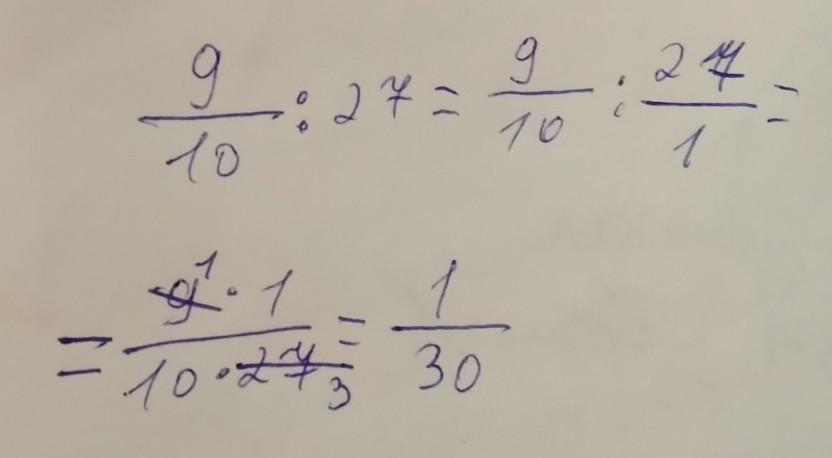 9/10 : 27 = 9/10 : 27/1 =
= 9¹ · 1 / 10 · 27₃ = 1/30